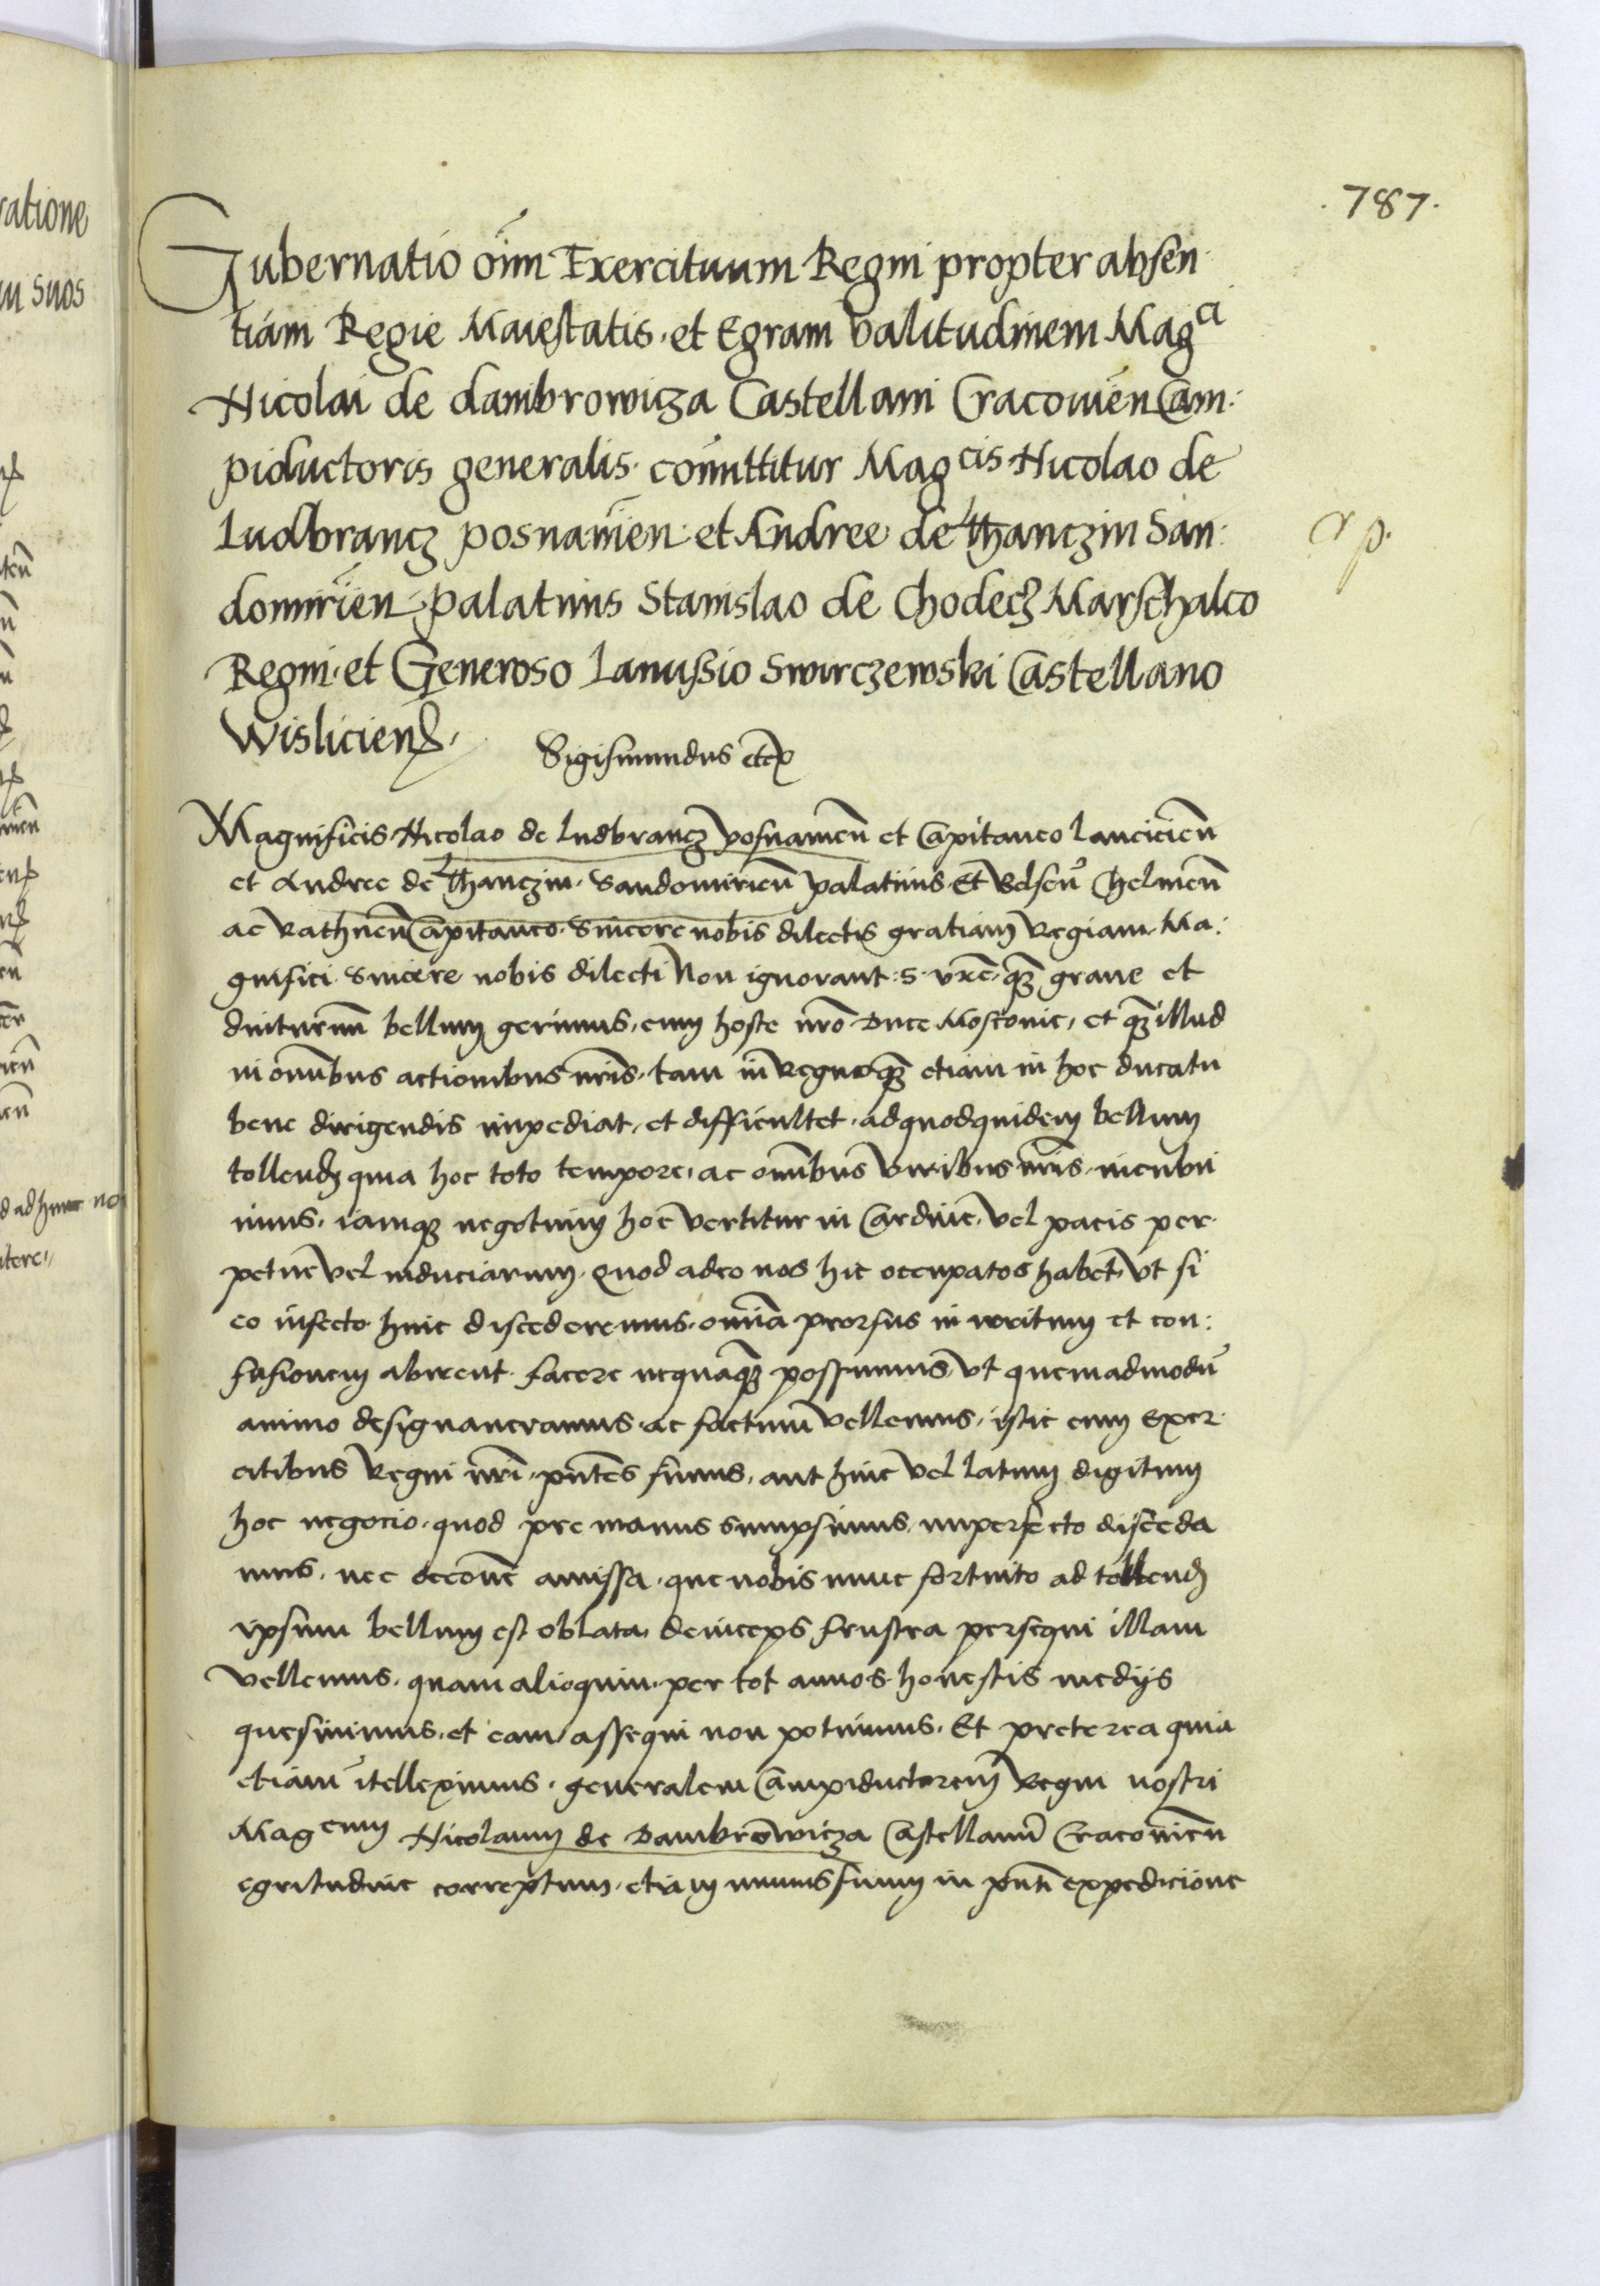 ratione
m suos
.787.
Gubernatio oīm Exercituum Regni propter absen
tiam Regie Maiestatis. et Egram valitudinem Magci
Nicolai de dambrowicza Castellani Cracouien̄ Cam:
piductoris generalis. com̄ittitur Magcis Nicolao de
Ludbrancz posnanien̄. et Andree de Thanczin San:
domirien̄ palatinis Stanislao de Chodecz Marschalco
Regni. et Generoso Ianussio Swirczewski Castellano
Wisliciens.
Sigismundus etc
Magnificis Nicolao de ludbrancz posnanien̄ et Capitaneo lancicien̄
et Andree de Thanczin. Sandomirien̄ palatinis. Et Belsen̄ Chelmen̄
ac Rathnen̄ Capitaneo. Sincere nobis dilectis gratiam regiam. Ma:
gnifici sincere nobis dilecti Non ignorant. s. vre. q̄ȝ graue et
diuturnū bellum gerimus, cum hoste nr̄o Duce Moscouie, et q̄ȝ illud
in om̄ibus actionibus nr̄is. tam in regno q̄ȝ etiam in hoc ducatu
bene dirigendis impediat, et difficultet. ad quod quidem bellum
tollend quia hoc toto tempore, ac om̄ibus viribus nr̄is. incubui
mus. iamqȝ negotium hoc vertitur in Cardine, vel pacis per
petue vel induciarum. Quod adeo nos hic occupatos habet, vt si
eo infecto hinc discederemus. omnia prorsus in irritum et con:
fusionem abirent. facere nequaq̄ȝ possumus, vt quemadmodū
animo designaueramus. ac factum vellemus, istic cum Exer
citibus Regni nr̄i. pn̄tes simus, aut hinc vel latum digitum
hoc negocio. quod pre manus sumpsimus, imperfecto disceda
mus, nec occōne amissa. que nobis nunc fortuito ad tollend
ipsum bellum est oblata, deinceps frustra persequi illam
vellemus. quam alioquin. per tot annos honestis medijs
quesiuimus. et eam assequi non potuimus. Et preterea quia
etiam ītelleximus. generalem Campiductorem Regni nostri
Magcum Nicolaum de Dambrowicza Castellanū Cracouien̄
egritudine correptum. etiam munus suum in pn̄ti expedicione
d ad hunc no